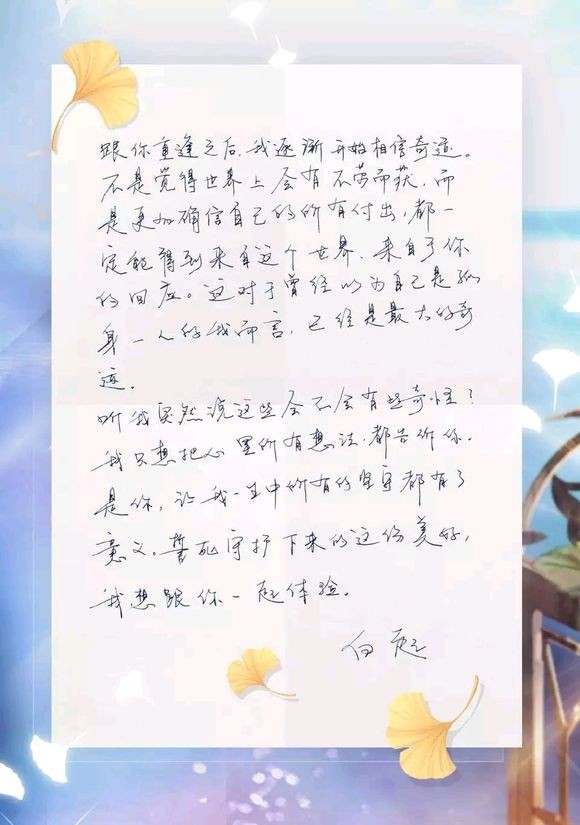 跟你重逢之后,我逐渐开始相信奇迹。
不是觉得世界上会有不劳而获,而
是更加确信自己的所有付出,都一
定能得到来自这个世界、来自于你
的回应。这对于曾经以为自己是孤
身一人的我而言,已经是最大的奇
迹。
听我突然说这些会不会有些奇怪?
我只想把心里所有想法都告诉你。
是你,让我一生中所有的坚守都有了
意义。誓死守护下来的这份美好,
我想跟你一起体验。
白起